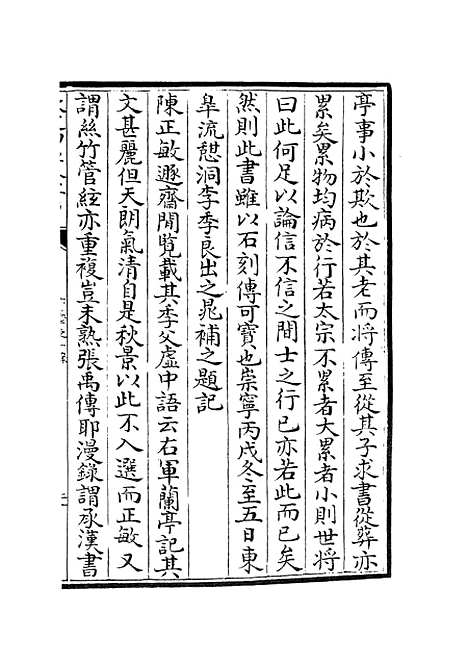 亭事小於欺也於其老而將傳至從其子求書從葬亦
累矣累物均病於行若太宗不累者大累者小則世將
曰此何足以論信不信之間士之行已亦若此而已矣
然則此書雖以石刻傳可寶也崇寧丙戌冬至五日東
皐流憇洞李季良出之晁補之題記
陳正敏遯齋閒覽載其季父虛中語云右軍蘭亭記其
文甚麗但天朗氣清自是秋景以此不入選而正敏又
謂絲竹管絃亦重複豈未熟張禹傳耶漫錄謂承漢書